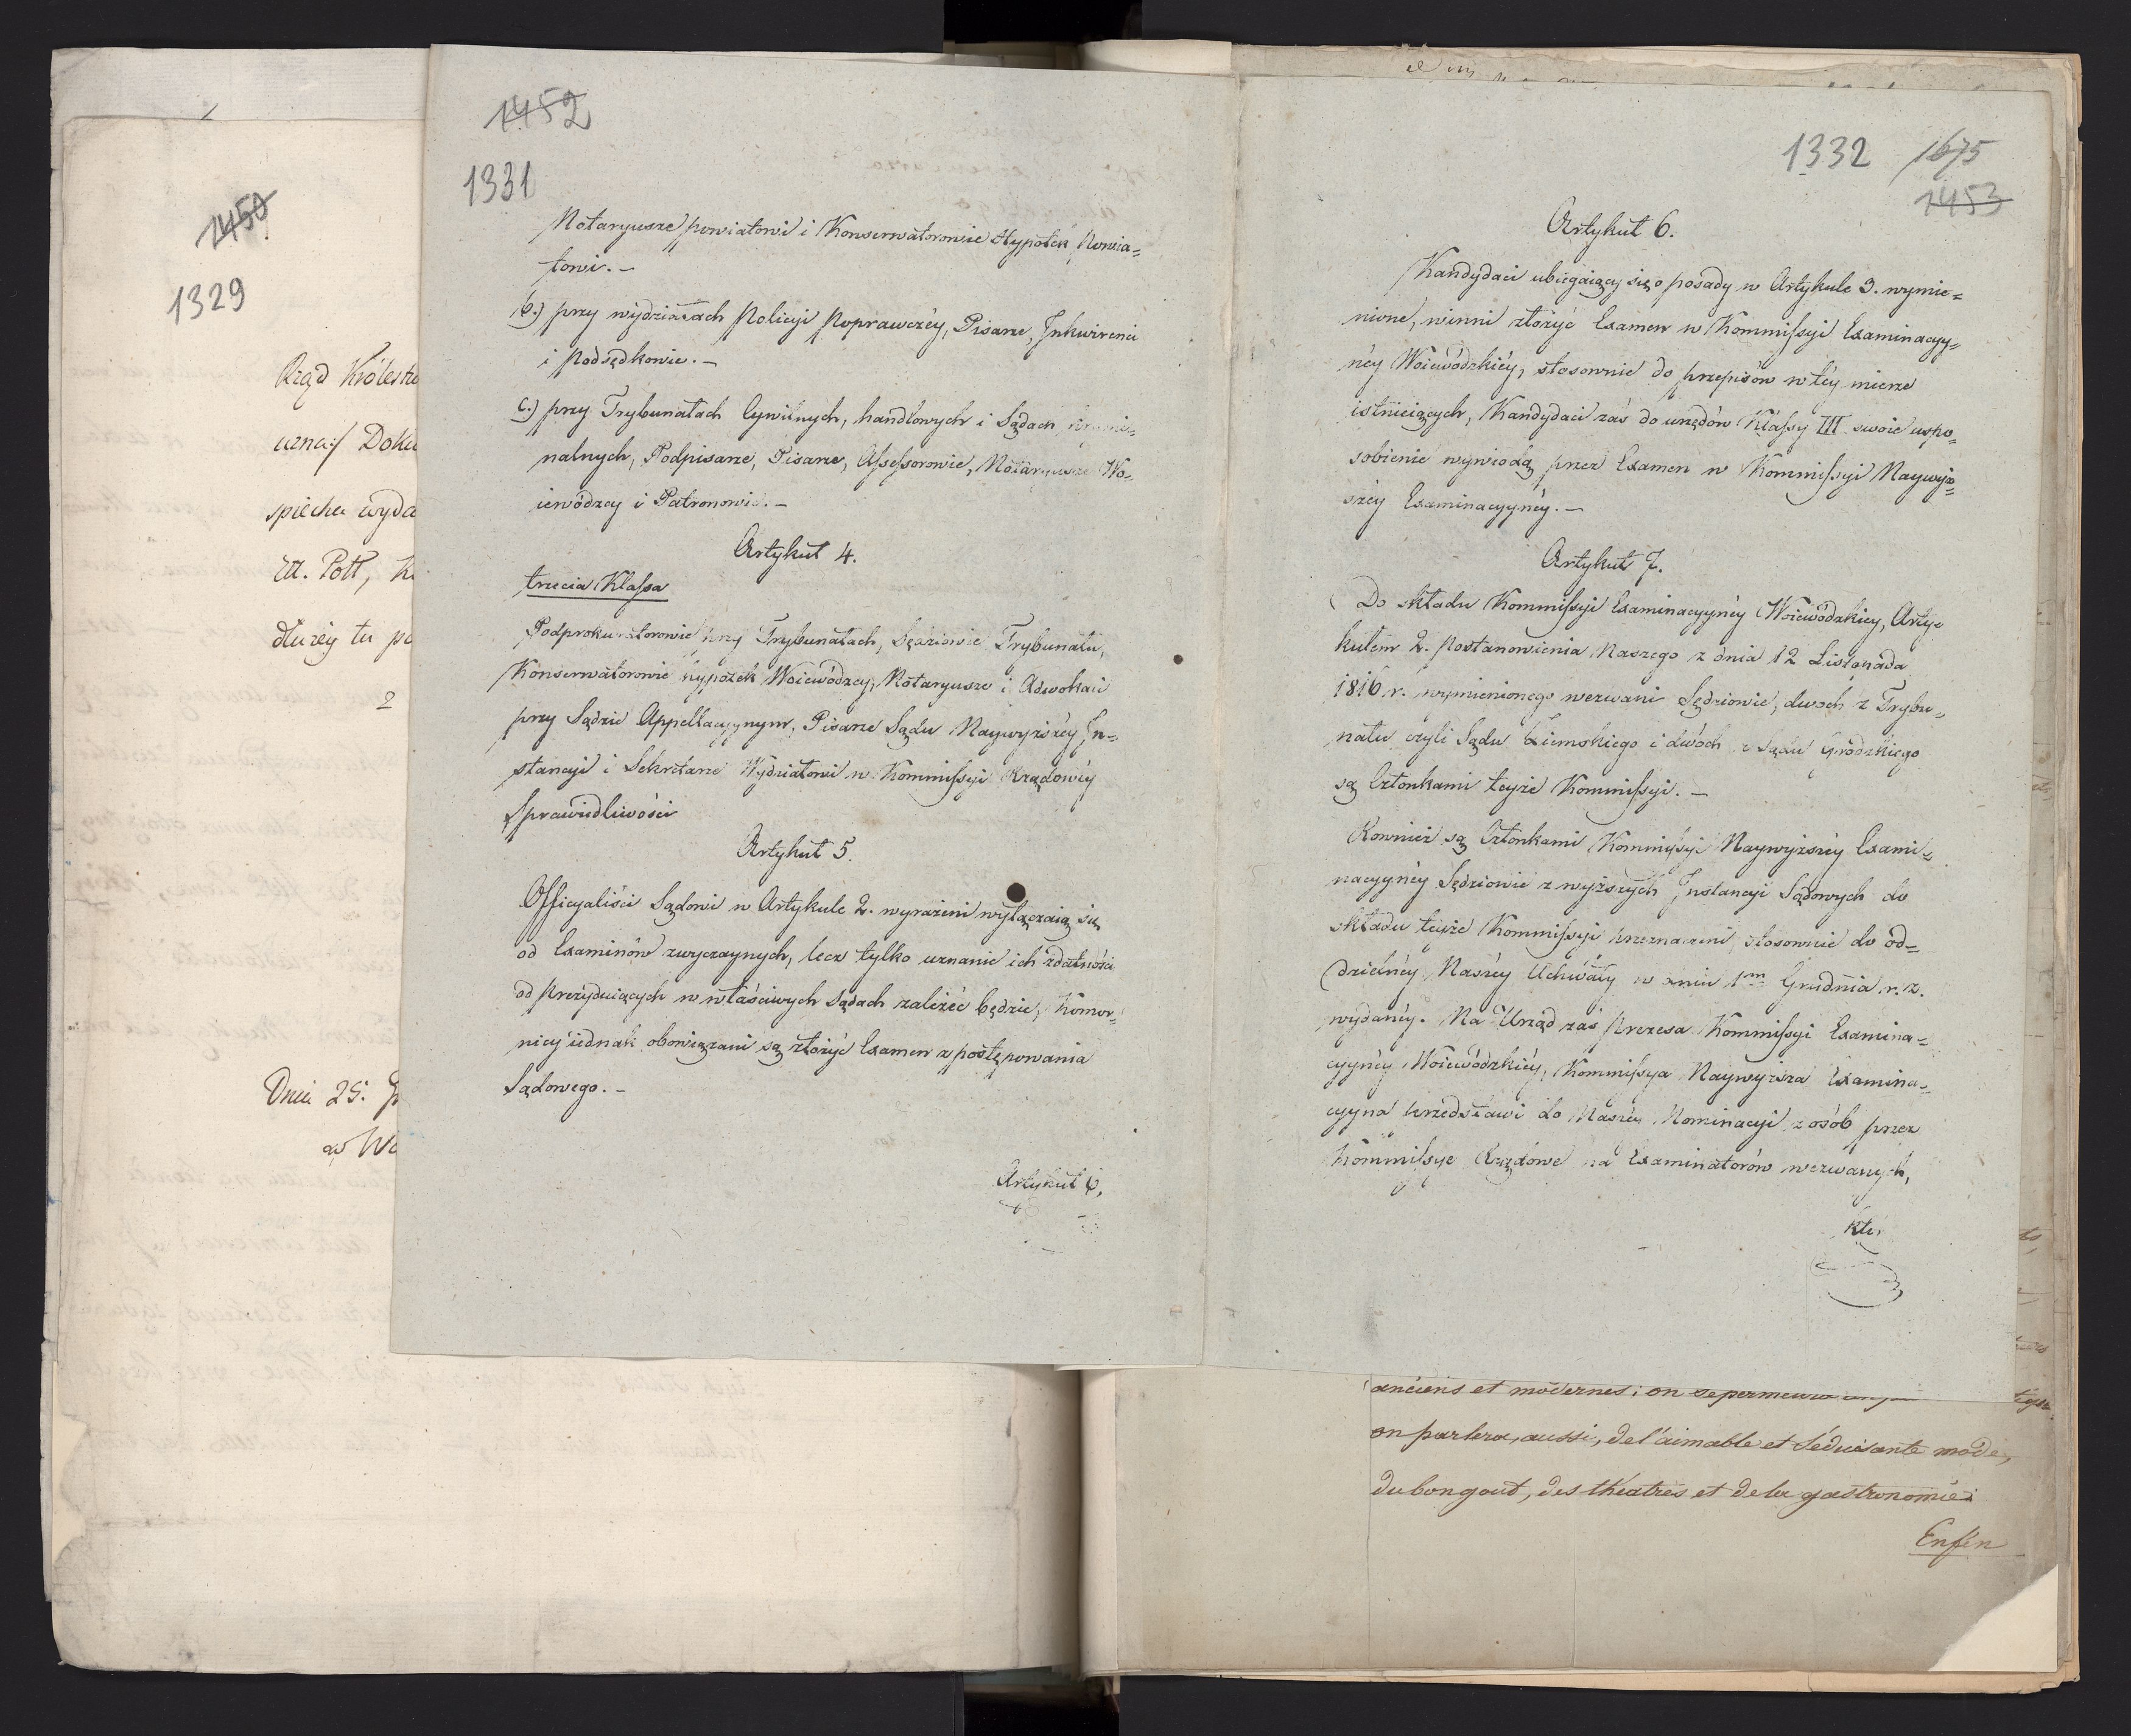 1450
1329
Rząd Królestw
uznał Doku
spiechu wyda
M. Pott, K
dłużéy tu po
2
Dnia 25. G
w Wa
1452
1331
Notaryusze powiatowi i Konserwatorowie Hypotek Powia=
towi.-
b.) przy wydziałach Policyi Poprawczéy, Pisarze, Inkwirenci
i Podsędkowie.-
c.) przy Trybunałach Cywilnych, handlowych i Sądach krymi=
nalnych, Podpisarze, Pisarze, Assessorowie, Notaryusze Wo=
iewódzcy i Patronowie.-
Artykuł 4.
trzecia Klassa
Podprokuratorowie przy Trybunałach, Sędziowie Trybunału,
Konserwatorowie hypotek Woiewódzcy, Notaryusze i Adwokaci
przy Sądzie Appellacyynym, Pisarze Sądu Naywyższéy In=
stancyi i Sekretarze Wydziałowi w Kommissyi Rządowéy
Sprawiedliwości
Artykuł 5.
Officyaliści Sądowi w Artykule 2. wyrażeni wyłączaią się
od Examinów zwyczaynych, lecz tylko uznanie ich zdatności
od Prezyduiących w właściwych Sądach zależeć będzie, Komor=
nicy iednak obowiązani są złożyć Examen z postępowania
Sądowego.-
Artykuł 6.
1332 1675
1453
Artykuł 6.
Kandydaci ubiegaiący się o posady w Artykule 3. wymie=
nione, winni złożyć Examen w Kommissyi Examinacyy=
néy Woiewódzkiéy, stosownie do przepisów w téy mierze
istnieiących, Kandydaci zaś do urzędów Klassy III. swoie uspo=
sobienie wywiodą przez Examen w Kommissyi Naywyż=
széy Examinacyynéy.-
Artykuł 7.
Do składu Kommissyi Examinacyynéy Woiewódzkiey, Arty=
kułem 2. Postanowienia Naszego z dnia 12 Listopada
1816 r. wymienionego wezwani Sędziowie, dwoch z Trybu=
nału czyli Sądu Ziemskiego i dwóch z Sądu Grodzkiego
są Członkami teyże Kommissyi.-
Rownież są Członkami Kommissyi Naywyższéy Exami=
nacyynéy Sędziowie z wyższych Instancyi Sądowych do
składu teyże Kommissyi przeznaczeni stosownie do od=
dzielnéy Naszéy Uchwały w dniu 1m Grudnia r. z.
wydanéy. Na Urząd zaś Prezesa Kommissyi Examina=
cyynéy Woiewódzkiéy, Kommissya Naywyższa Examina=
cyyna przedstawi do Naszéy Nominacyi z osób przez
Kommissye Rządowe na Examinatorów wezwanych,
któ,
anciens et modernes; on se permettra
on parlera, aussi, de l'aimable et séduisante mode,
du bon gout, des théatres et de la gastronomie;
Enfin